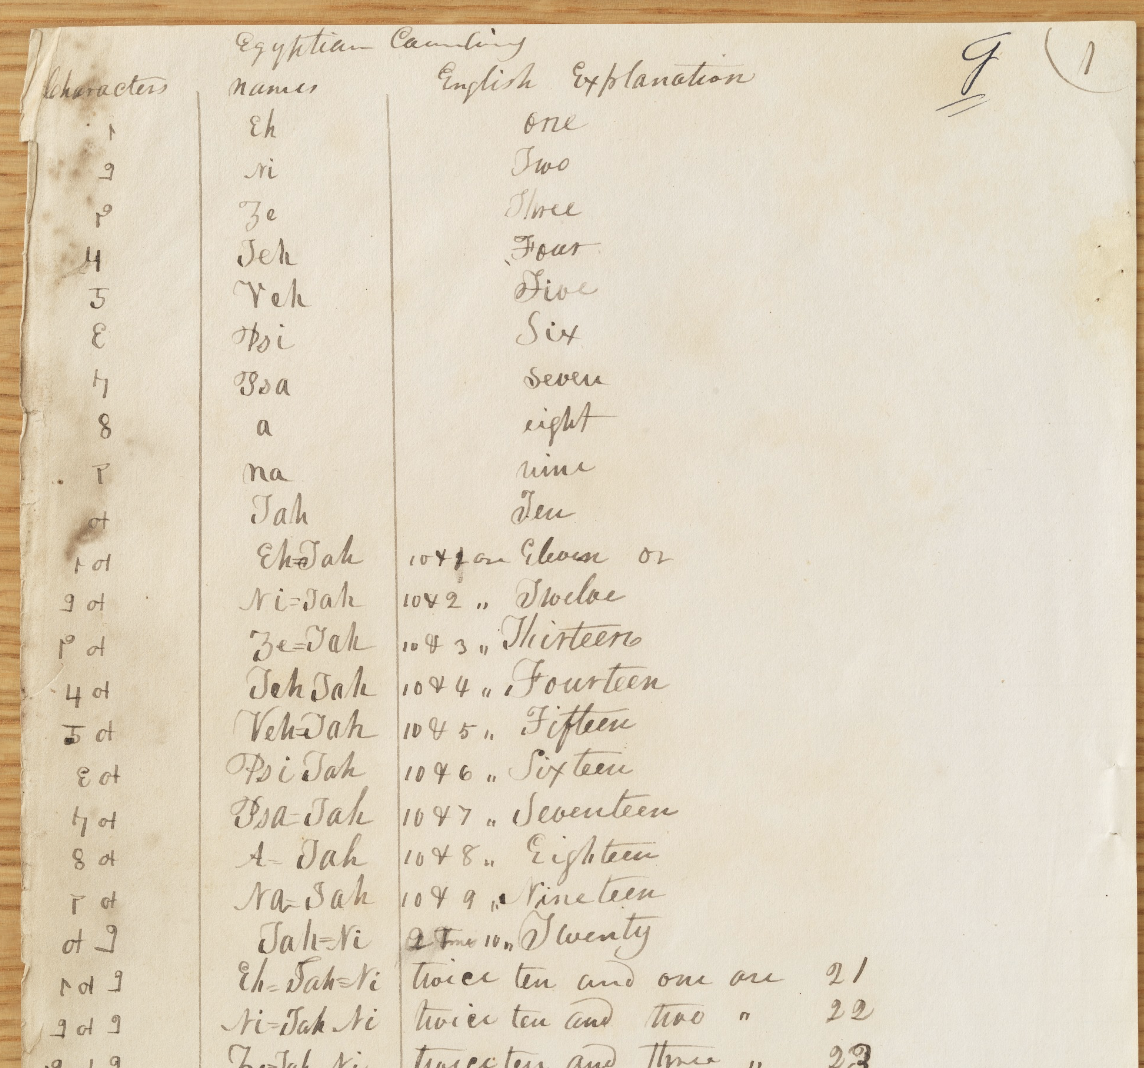 Egyptian Counting
g (1
Characters names English Explanation
Eh one
Ni Two
Ze Three
4 Teh Four
5 Veh Five
Psi Six
Psa seven
8 a eight
na nine
Tah Ten
Eh=Tah 10 & 1 are Eleven or
Ni=Tah 10 & 2 " Twelve
Ze=Tah 10 & 3 " Thirteen
4 Teh Tah 10 & 4 " Fourteen
5 Veh=Tah 10 & 5 " Fifteen
Psi Tah 10 & 6 " Sixteen
Psa=Tah 10 & 7 " Seventeen
8 A= Tah 10 & 8 " Eighteen
Na=Tah 10 & 9 " Nineteen
Tah=Ni 2 Time 10 " Twenty
Eh=Tah=Ni twice ten and one are 21
Ni=Tah Ni twice ten and two " 22
Ze=Tah Ni twice ten and three " 23